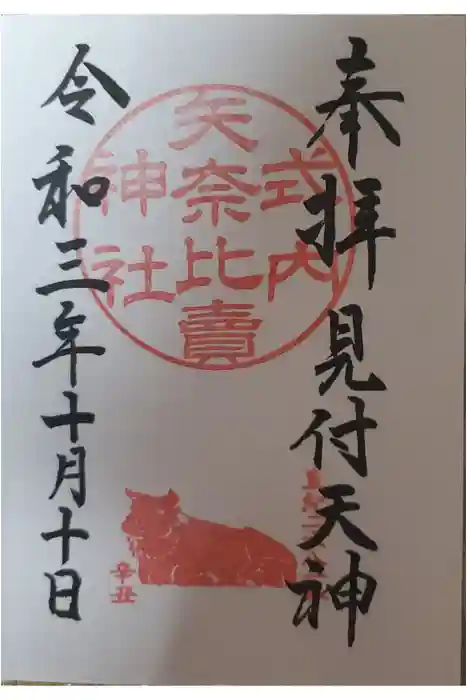 奉拝見付天神
式内
矢奈比賣
神社
辛丑
令和三年十月十日